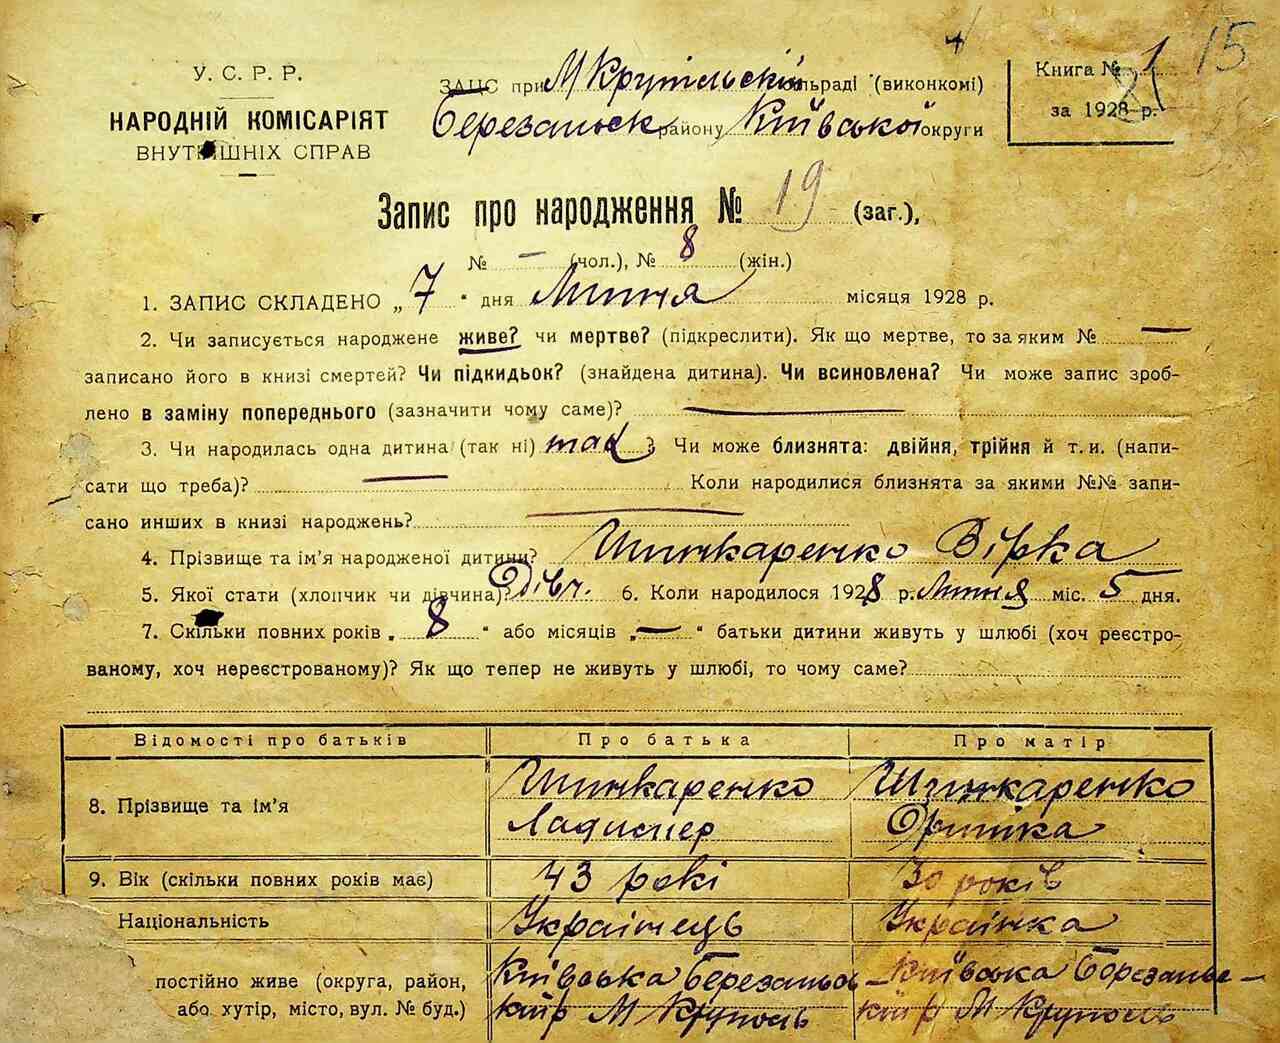 15
У. С. Р. Р.
НАРОДНІЙ КОМІСАРІЯТ
ВНУТРІШНІХ СПРАВ
ЗАЦС при М Крупільскій сільраді (виконкомі)
Березаньск району Київської округи
Книга № 1
за 1928 р.
Запис про народження № 19 (заг.),
№ — (чол.), № 8 (жін.)
1. ЗАПИС СКЛАДЕНО „ 7 “ дня Липня місяця 1928 р.
2. Чи записується народжене живе? чи мертве? (підкреслити). Як що мертве, то за яким № —
записано його в книзі смертей? Чи підкидьок? (знайдена дитина). Чи всиновлена? Чи може запис зроб-
лено в заміну попереднього (зазначити чому саме)? —
3. Чи народилась одна дитина (так ні) так ? Чи може близнята: двійня, трійня й т. и. (напи-
сати що треба)? — Коли народилися близнята за якими №№ запи-
сано инших в книзі народжень? —
4. Прізвище та ім’я народженої дитини? Шинкаренко Вірка
5. Якої стати (хлопчик чи дівчина)? Дівч. 6. Коли народилося 1928 р. Липня міс. 5 дня.
7. Скільки повних років „ 8 “ або місяців „ — “ батьки дитини живуть у шлюбі (хоч реєстро-
ваному, хоч нереєстрованому)? Як що тепер не живуть у шлюбі, то чому саме?
Відомості про батьків Про батька Про матір
8. Прізвище та ім’я Шинкаренко Шинкаренко
Ладимер Оришка
9. Вік (скільки повних років має) 43 рокі 30 років
Національність Українець Українка
постійно живе (округа, район, Київська Березансь- Київська Березансь-
або хутір, місто, вул. № буд.) кий р М Круполь кий р М Круполь